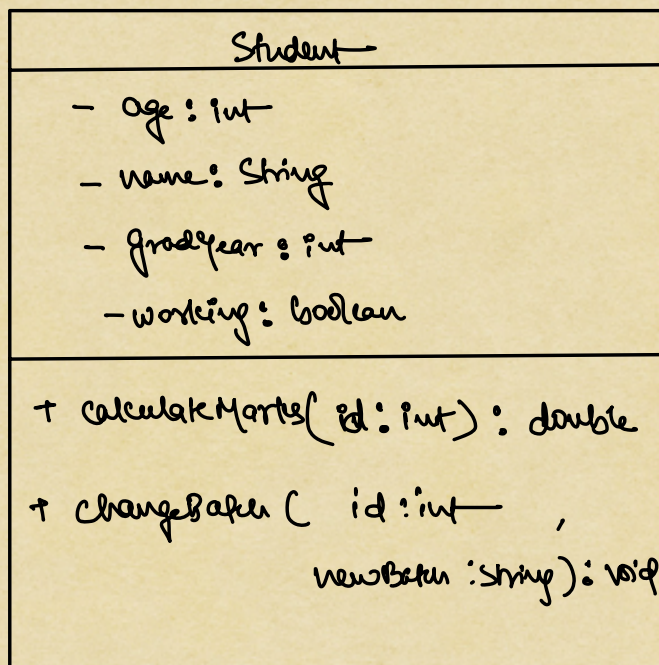 Student
- age : int
- name : String
- gradYear : int
- working : boolean
+ calculateMarks( id : int ) : double
+ changeBatch ( id : int ,
newBatch : string ) : void